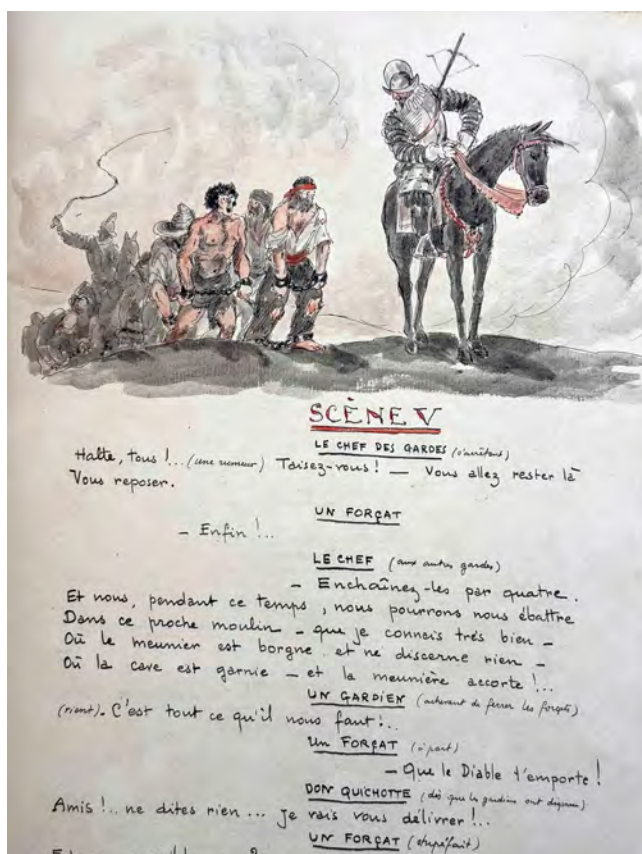 SCÈNE V
LE CHEF DES GARDES (s'arrêtant)
Halte, tous !... (une rumeur) Taisez-vous ! — Vous allez rester là
Vous reposer.
UN FORÇAT
- Enfin !..
LE CHEF (aux autres gardes)
- Enchaînez-les par quatre.
Et nous, pendant ce temps, nous pourrons nous ébattre
Dans ce proche moulin - que je connais très bien -
Où le meunier est borgne et ne discerne rien -
Où la cave est garnie - et la meunière accorte !...
UN GARDIEN (achevant de ferrer les forçats)
(riant). C'est tout ce qu'il nous faut !..
UN FORÇAT (à part)
- Que le Diable t'emporte !
DON QUICHOTTE (dès que les gardiens ont disparu)
Amis !.. ne dites rien ... je vais vous délivrer !..
UN FORÇAT (stupéfait)